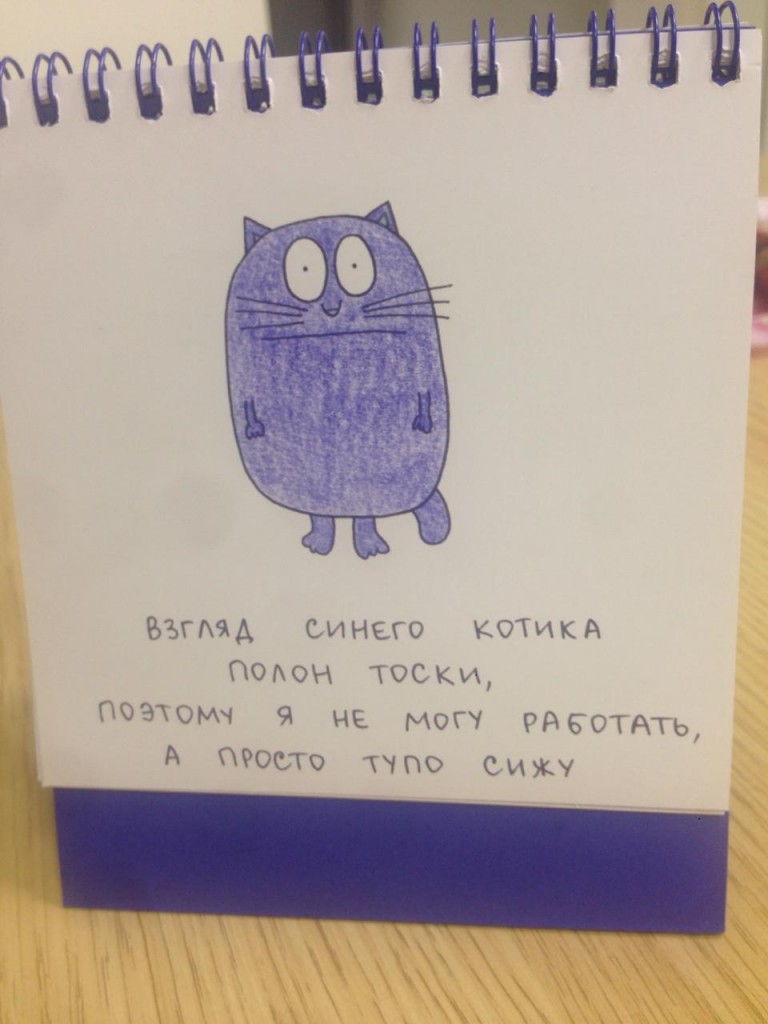 ВЗГЛЯД СИНЕГО КОТИКА
ПОЛОН ТОСКИ,
ПОЭТОМУ Я НЕ МОГУ РАБОТАТЬ,
А ПРОСТО ТУПО СИЖУ